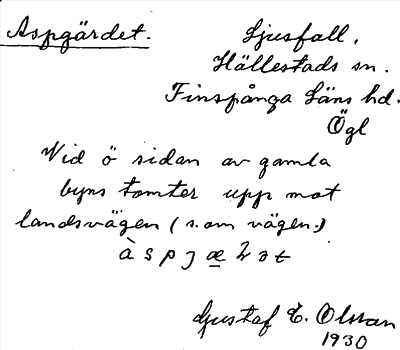 Aspgärdet.
Ljusfall,
Hällestads sn.
Finspånga Läns hd.
Ögl
Vid ö sidan av gamla
byns tomter upp mot
landsvägen (s. om vägen.)
Gustaf E. Olsson
1930